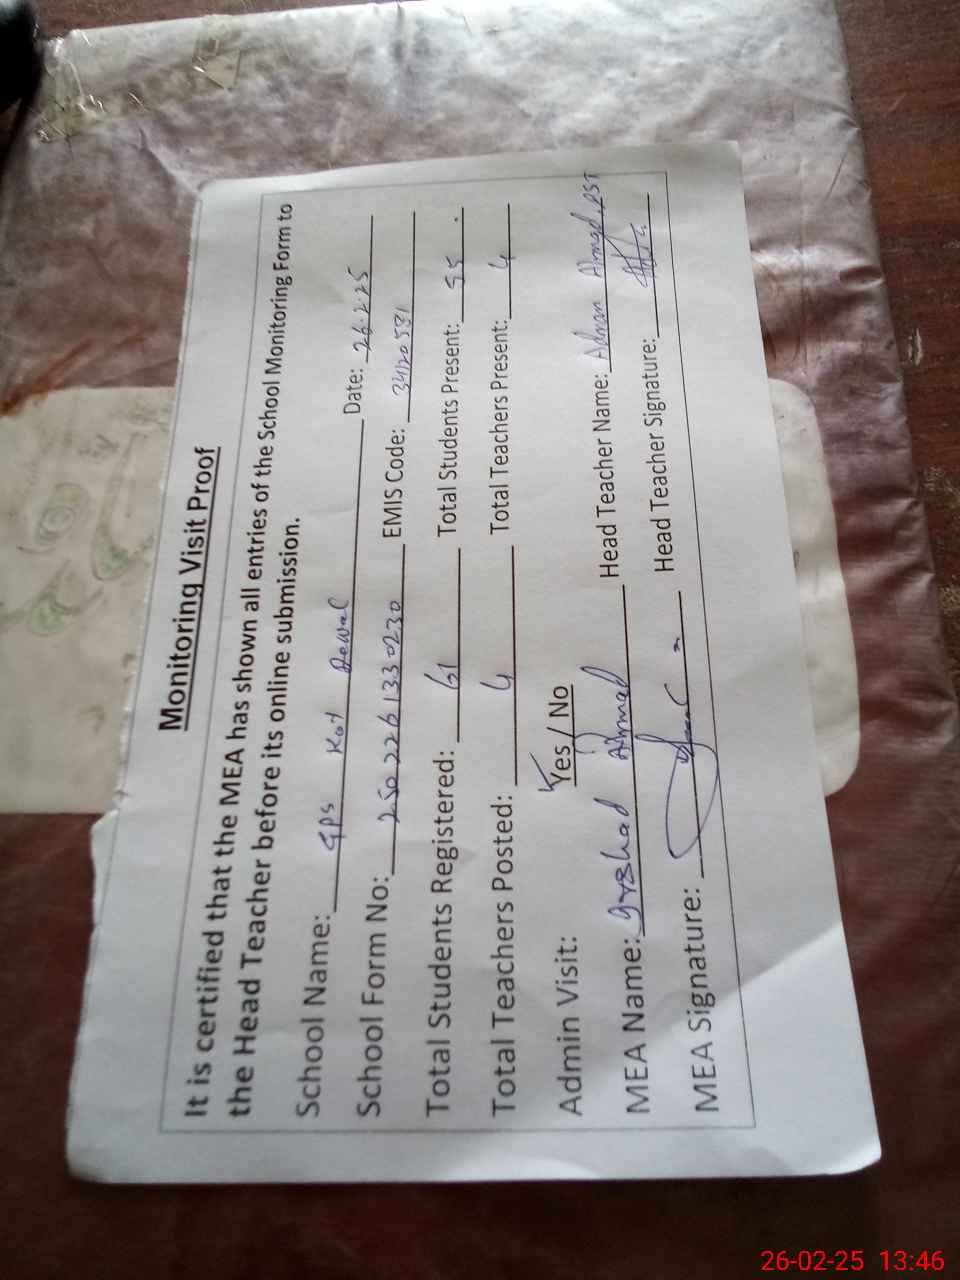 Monitoring Visit Proof
It is certified that the MEA has shown all entries of the School Monitoring Form to
the Head Teacher before its online submission.
School Name: GPS Kot Dewal Date: 26.2.25
School Form No: 2502261330230 EMIS Code: 34120581
Total Students Registered: 61 Total Students Present: 55
Total Teachers Posted: 4 Total Teachers Present: 4
Admin Visit: Yes / No
MEA Name: Ahmad Head Teacher Name: Adnan Ahmad, PST
MEA Signature: Head Teacher Signature:
26-02-25 13:46